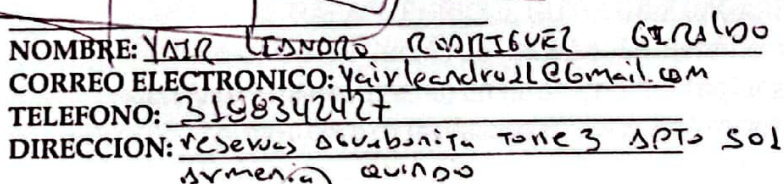 NOMBRE: YAIR LEANDRO RODRIGUEZ GIRALDO
CORREO ELECTRONICO: Yairleandro11@Gmail.com
TELEFONO: 3188342427
DIRECCION: reservas Aguabonita Torre 3 APTO 501
Armenia QUINDO